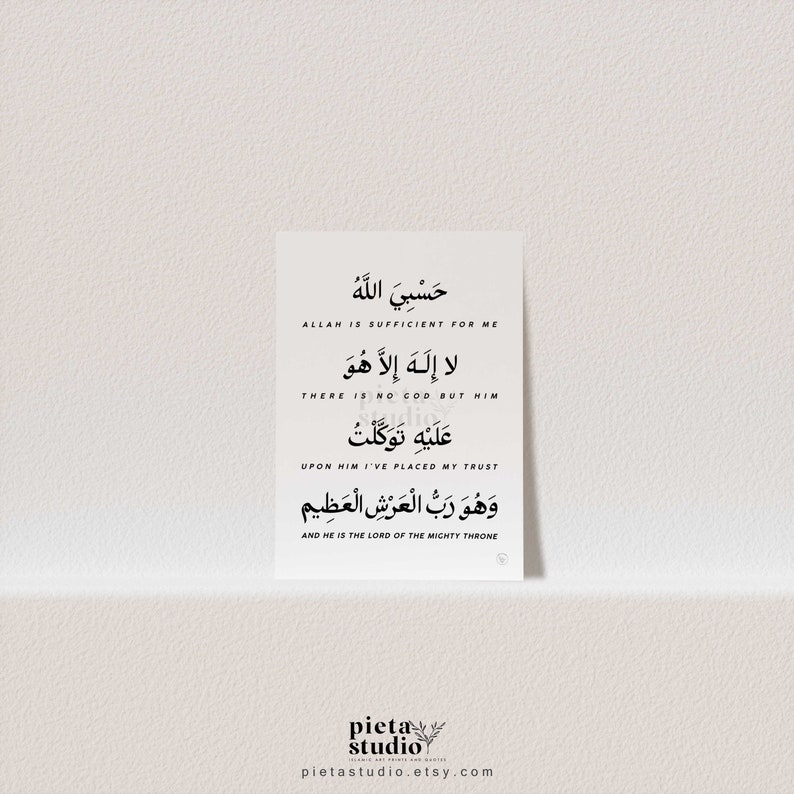 حَسْبِيَ اللَّهُ
ALLAH IS SUFFICIENT FOR ME
لا إِلَـهَ إِلاَّ هُوَ
THERE IS NO GOD BUT HIM
pieta
studio
عَلَيْهِ تَوَكَّلْتُ
UPON HIM I'VE PLACED MY TRUST
وَهُوَ رَبُّ الْعَرْشِ الْعَظِيم
AND HE IS THE LORD OF THE MIGHTY THRONE
pieta
studio
ISLAMIC ART PRINTS AND QUOTES
pietastudio.etsy.com